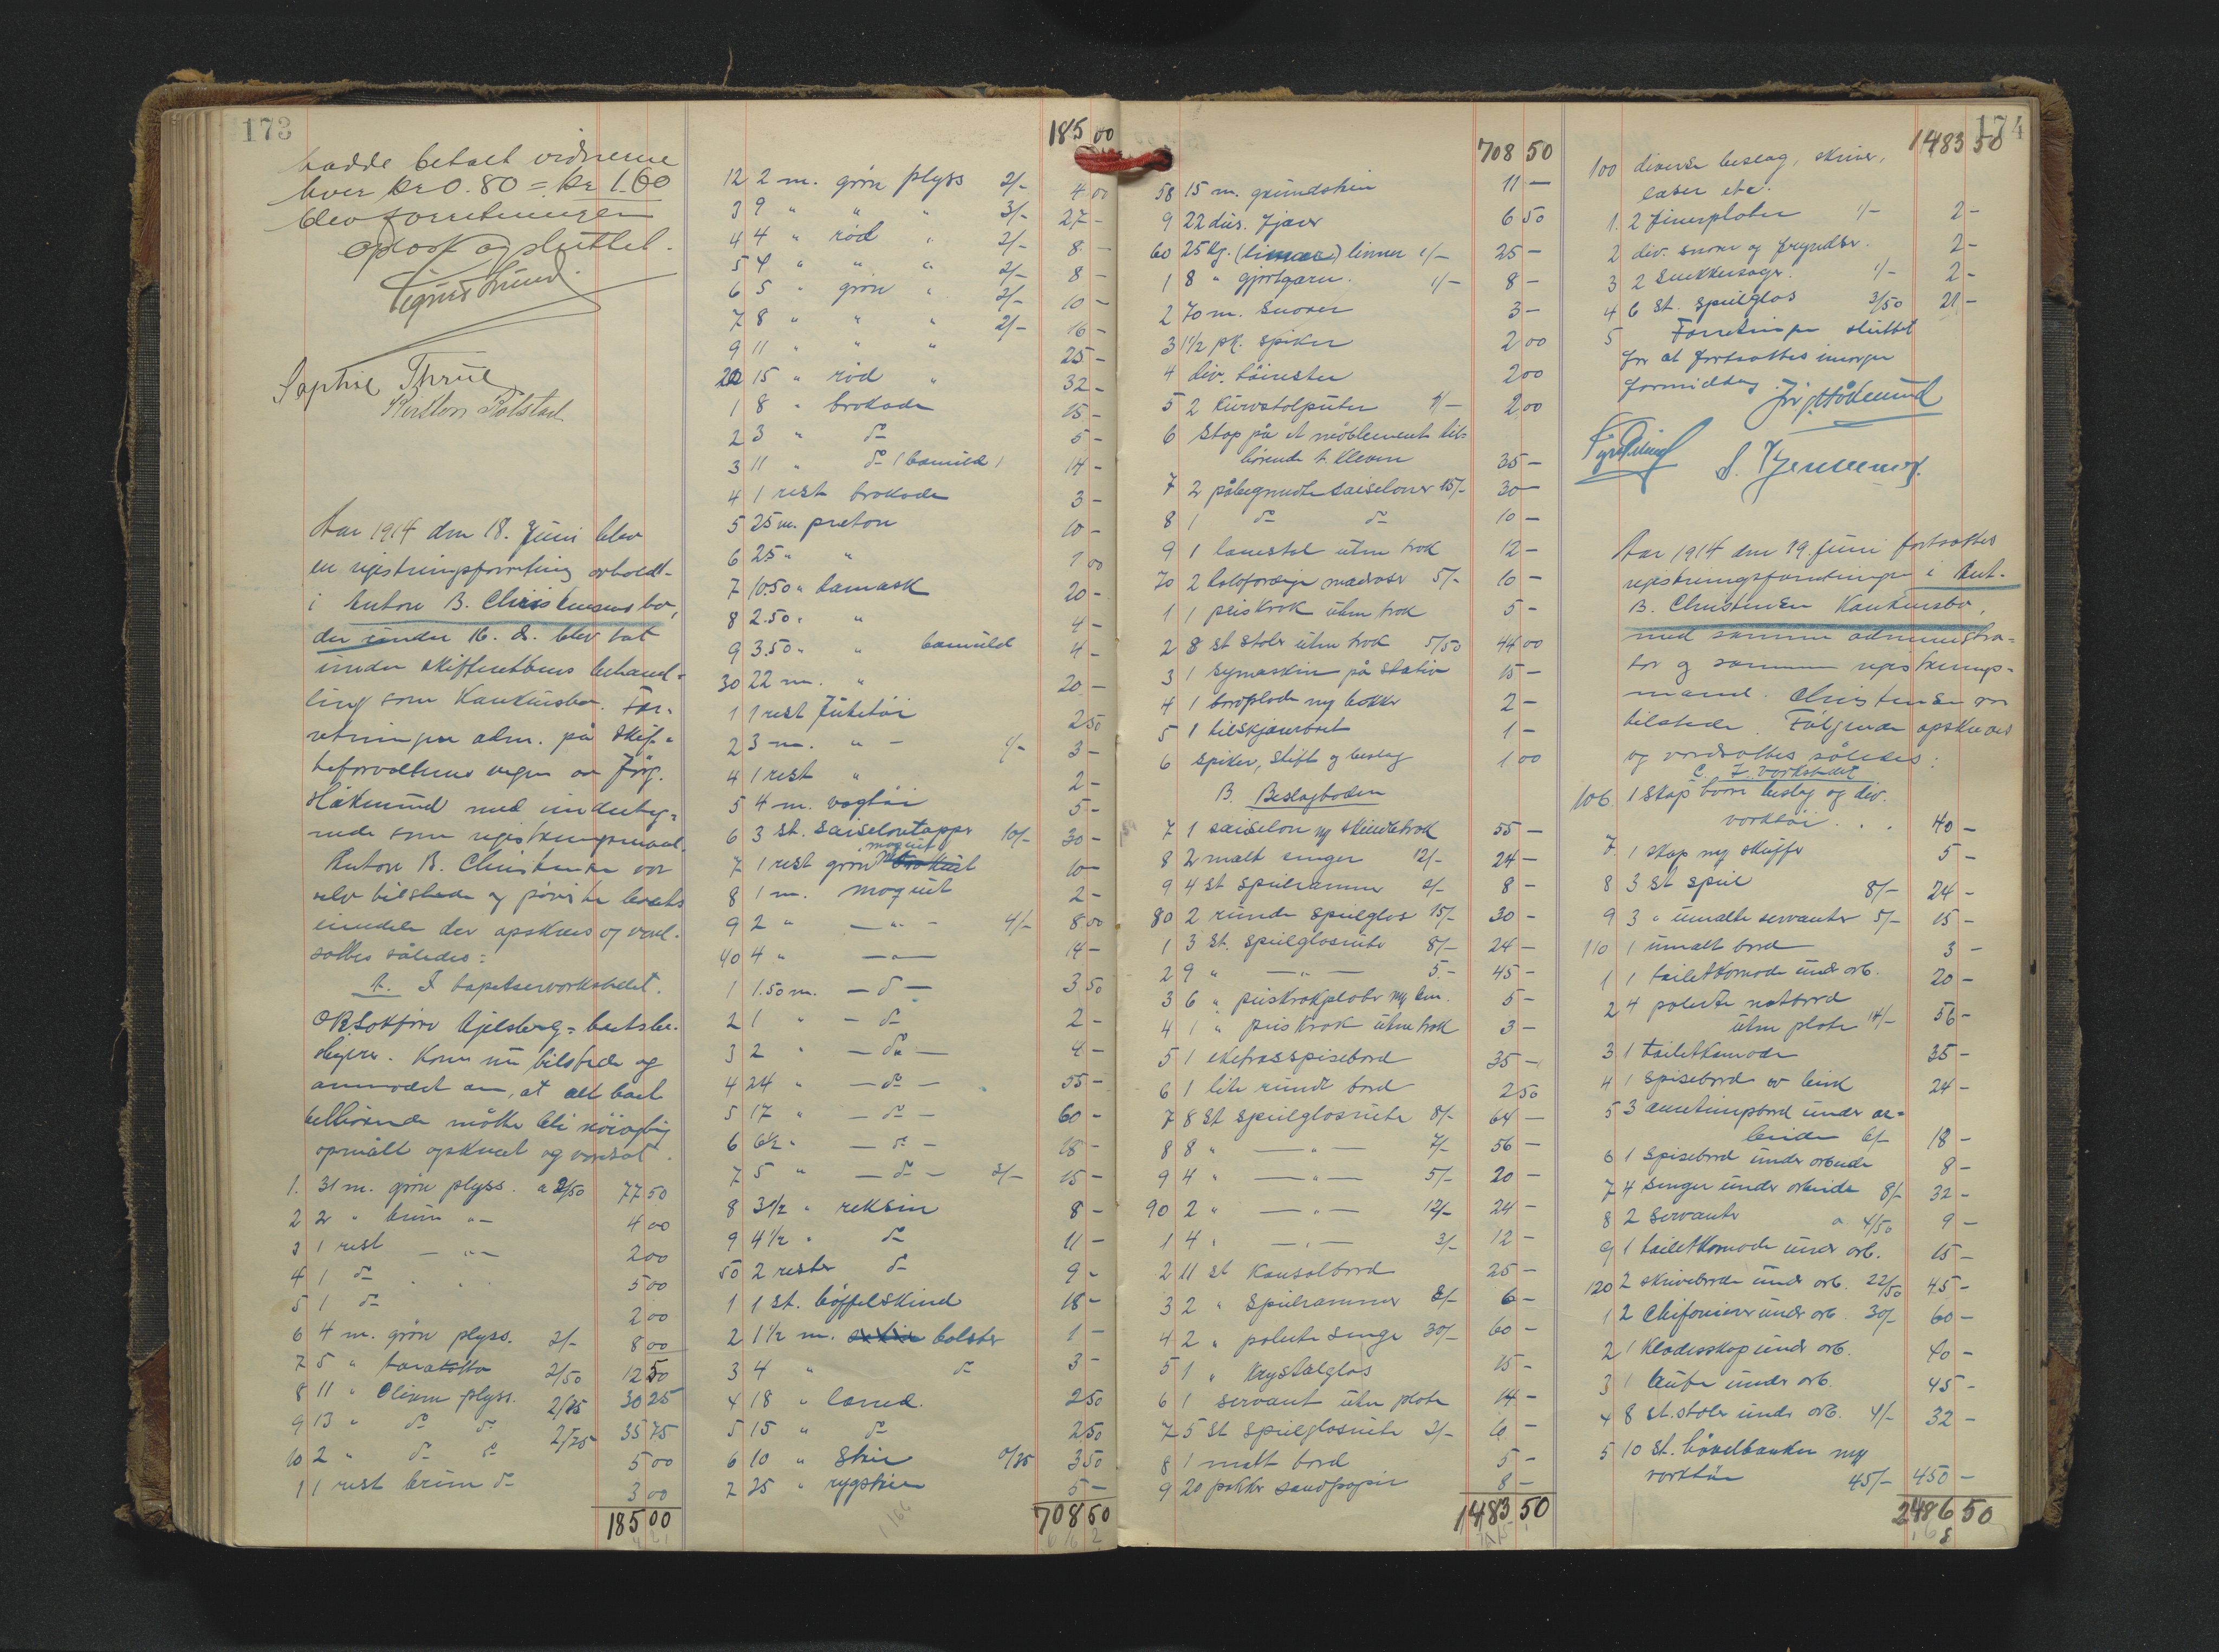 173
hadde betalt vidnerne
hver kr 0.80 = kr 1.60
blev forretningen
oplæst og sluttet.
Sigurd Lund
Sophie Thrue
Aar 1914 den 18. Juni blev
en registreringsforretning avholdt
i Anton B. Christensens bo,
der under 16. ds. blev tat
under skifterettens behand-
ling som konkursbo. For-
retningen adm. på skif-
teforvalterens vegne av Jørg.
Håkmund med underteg-
nede som registreringsmand.
Anton B. Christensen var
selv tilstede og påviste boets
eiendele der opskrevs og værd-
sattes således:
A. I tapetserverkstedet.
ORSakfører Kjelsberg = boets be-
styrer. Kom nu tilstede og
anmodet om, at alt boet
tilhørende måtte bli nøiagtig
opmålt opskrevet og værdsat.
1. 31 m. grøn plyss. a 2/50 77 50
2 2 " brun "- 4 00
3 1 rest -"- 2 00
4 1 do " 5 00
5 1 do 2 00
6 4 m. grøn plyss. 2/- 8 00
7 5 " 2/50 12 50
8 11 " Oliven plyss. 2/75 30 25
9 13 " do do 2/75 35 75
10 2 " do do 5 00
1 1 rest brun do 3 00
185 00
185 00
12 2 m. grøn plyss 2/- 4 00
3 9 " " " 3/- 27 -
4 4 " rød " 2/- 8 -
5 4 " " " 2/- 8 -
6 5 " grøn " 2/- 10 -
7 8 " " " 2/- 16 -
9 11 " " " 25 -
20 15 " rød " 32 -
1 8 " brokade 15 -
2 3 " do 5 -
3 11 " do (bomuld) 14 -
4 1 rest brokade 3 -
5 25 m. preton 10 -
6 25 " " 1 00
7 10.50 " damask 20 -
8 2.50 " " 4 -
9 3.50 " " bomuld 4 -
30 22 m. " 20 -
1 1 rest Jutetøi 2 50
2 3 m. " - 1/- 3 -
4 1 rest " 2 -
5 4 m. vogtøi 5 -
6 3 st. saiselontæpper 10/- 30 -
7 1 rest grøn moquet 10 -
8 1 m. moquet 2 -
9 2 " -"- 4/- 8 00
40 4 " -"- 14 -
1 1.50 m. - do - 3 50
2 1 " - do 2 -
3 2 " - do - 4 -
4 24 " - do - 55 -
5 17 " - do - 60 -
6 6½ " - do - 18 -
7 5 " - do - 3/- 15 -
8 3½ " reksin 8 -
9 4½ " do 11 -
50 2 rester do 9 -
1 1 st. bøffelskind 18 -
2 1½ m. bolster 1 -
3 4 " do 3 -
4 18 " lærred. 2 50
5 15 " do 2 50
6 10 " Strie 0/35 3 50
7 25 " rygstrie 5 -
708 50
708 50
58 15 m. grundstrie 11 -
9 22 dus. fjærer 6 50
60 25 kg. linner 1/- 25 -
1 8 " gjortgarn. 1/- 8 -
2 70 m. Snorer 3 -
3 1½ pk. spiker 2 00
4 div. tøirester 2 00
5 2 kurvstolputer 1/- 2 00
6 Stop på et møblement til-
hørende t. Kleven 35 -
7 2 påbegyndte saiseloner 15/- 30 -
8 1 do do 10 -
9 1 lænestol uten træk 12 -
70 2 halvfærdige madrasser 5/- 10 -
1 1 peiskrok uten træk 5 -
2 8 st stoler uten træk 5/50 44 00
3 1 symaskin på stativ 15 -
4 1 bordplade og bokker 2 -
5 1 tilskjærerbret 1 -
6 Spiker, Stifte og beslag 1 00
B. Beslagboden
7 1 saiselon og skindtræk 55 -
8 2 malt senger 12/- 24 -
9 4 st speilrammer 2/- 8 -
80 2 runde speilglas 15/- 30 -
1 3 st. speilglasruter 8/- 24 -
2 9 " -"- 5.- 45 -
3 6 " 5 -
4 1 " peiskrok uten træk 3 -
5 1 ekefrasspisebord 35 -
6 1 lite rundt bord 2 50
7 8 st speilglasruter 8/- 64 -
8 8 " -"- 7/- 56 -
9 4 " -"- 5/- 20 -
90 2 " -"- 12/- 24 -
1 4 " -"- 3/- 12 -
2 11 st konsolbord 25 -
3 2 " Speilrammer 3/- 6 -
4 2 " polerte senge 30/- 60 -
5 1 " krystalglas 15 -
6 1 servant uten plate 14 -
7 5 st speilglasruter 2/- 10 -
8 1 malt bord 5 -
9 20 pakker sandpapir 8 -
1483 50
174
1483 50
100 diverse beslag, skruer,
laser etc.
1. 2 finerplater 1/- 2 -
2 div. snorer og fryndser. 2 -
3 2 Snekkersager. 1/- 2 -
4 6 st. speilglas 3/50 21 -
5 Forretningen sluttet
for at fortsættes imorgen
formiddag. Jørg. Håkmund
Aar 1914 den 19. Juni fortsattes
registreringsforretningen i Ant.
B. Christensen konkursbo,
med samme administra-
tor og samme registrerings-
mand. Christensen var
tilstede. Følgende opskreves
og værdsattes således:
C. I verkstedet
106. 1 skap hvori beslag og div.
verktøi . . 40 -
7 1 skap og skuffer 5 -
8 3 st speil 8/- 24 -
9 3 " umalte servanter 5/- 15 -
110 1 umalt bord 3 -
1 1 toiletkomode under arb. 20 -
2 4 polerte natbord
uten plate 14/- 56 -
3 1 toiletkomode 35 -
4 1 spisebord av birk 24 -
5 3 anretningsbord under ar-
beide 6/- 18 -
6 1 spisebord under arbeide 8 -
7 4 senger under arbeide 8/- 32 -
8 2 servanter a 4/50 9 -
9 1 toiletkomode under arb. 15 -
120 2 skriveborde under arb. 22/50 45 -
1 2 Chifonierer under arb. 30/- 60 -
2 1 klædesskap under arb. 40 -
3 1 bufe under arb. 45 -
4 8 st. stoler under arb. 4/- 32 -
5 10 st. høvelbænker og
verktøi 45/- 450 -
2486 50